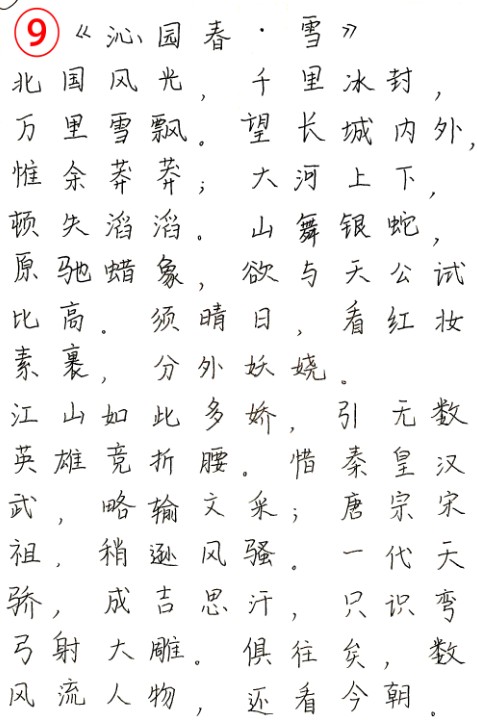 9 《沁园春·雪》
北国风光，千里冰封，
万里雪飘。望长城内外，
惟余莽莽；大河上下，
顿失滔滔。山舞银蛇，
原驰蜡象，欲与天公试
比高。须晴日，看红妆
素裹，分外妖娆。
江山如此多娇，引无数
英雄竞折腰。惜秦皇汉
武，略输文采；唐宗宋
祖，稍逊风骚。一代天
骄，成吉思汗，只识弯
弓射大雕。俱往矣，数
风流人物，还看今朝。